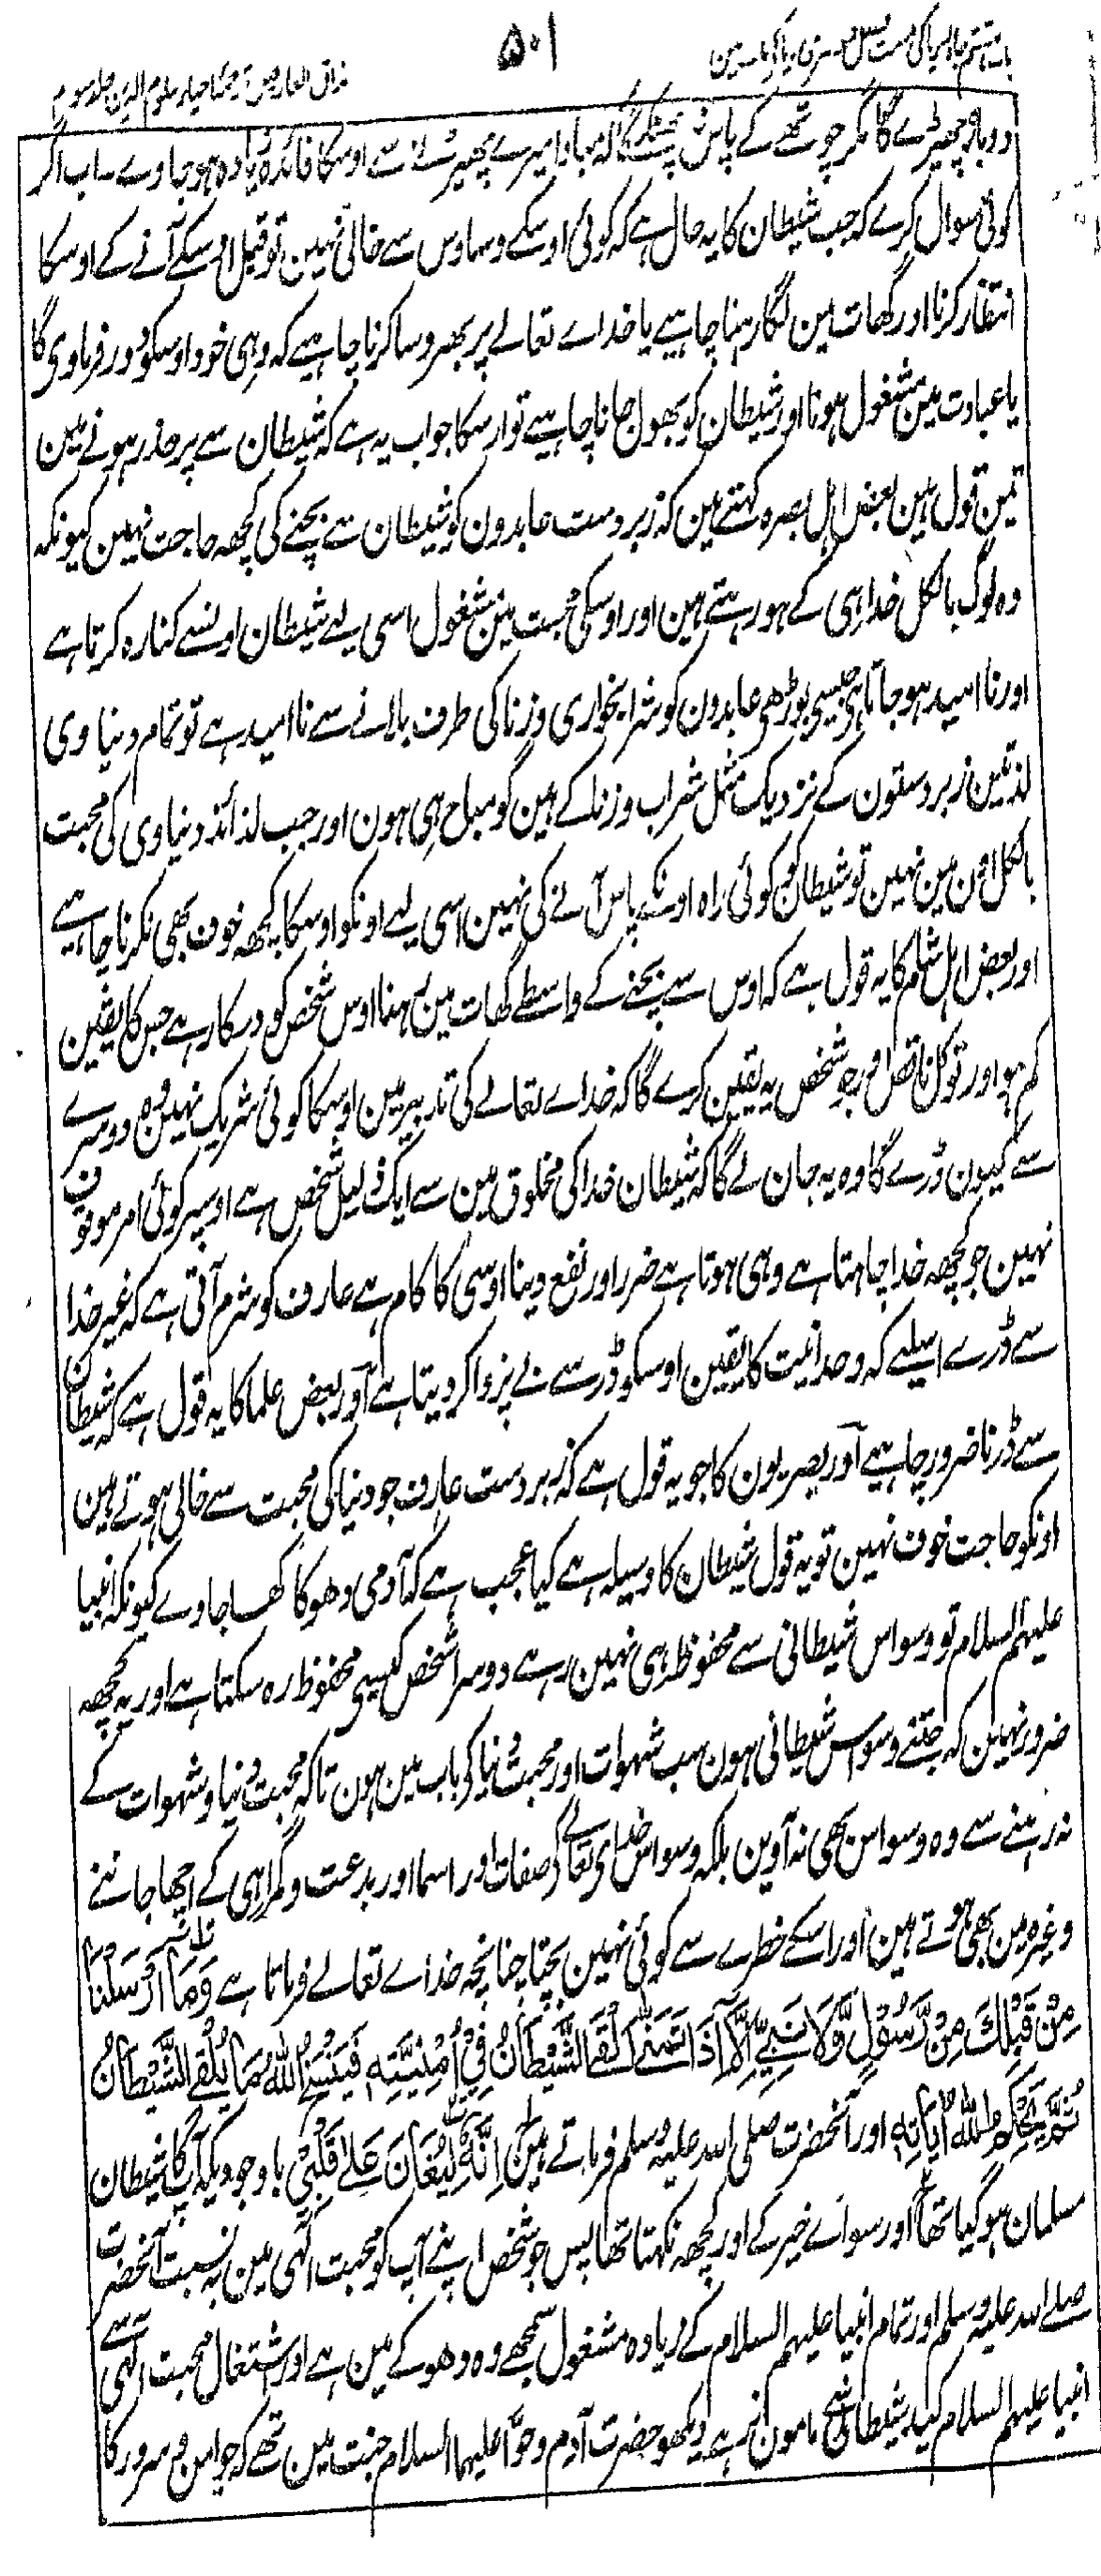 ۵۰۱
مذاق العارفین ترجمہ احیاء علوم الدین جلد سوم
دوبارہ چھیڑے گا مگر چوتھے کے پاس نہ پھٹکے گا کہ مبادا میرے چھیڑنے سے اوسکا فائدہ زیادہ ہوجاوے۔ اب اگر
کوئی سوال کرے کہ جب شیطان کا یہ حال ہے کہ کوئی اوسکے وساوس سے خالی نہین تو قبل اوسکے آنے کے اوسکا
انتظار کرنا اور گھات مین لگا رہنا چاہیے یا خداے تعالے پر بھروسا کرنا چاہیے کہ وہی خود اوسکو دور فرماوی گا
یا عبادت مین مشغول ہونا اور شیطان کو بھول جانا چاہیے تو اسکا جواب یہ ہے کہ شیطان سے پر حذر ہونے مین
تین قول ہین بعض اہل بصرہ کہتے ہین کہ زبردست عابدون کو شیطان سے بچنے کی کچھ حاجت نہین کیونکہ
وہ لوگ بالکل خدا ہی کے ہو رہتے ہین اور اوسکی محبت مین مشغول اسی لیے شیطان اونسے کنارہ کرتا ہے
اور نا امید ہوجاتا ہی جیسی بوڑھی عابدون کو شرابخواری و زنا کی طرف بلانے سے نا امید ہے تو تمام دنیاوی
لذتین زبردستون کے نزدیک مثل شراب و زنا کے ہین گو مباح ہی ہون اور جب لذائذ دنیاوی کی محبت
بالکل اون مین نہین تو شیطان کو کوئی راہ اونکے پاس آنے کی نہین اسی لیے اونکو اوسکا کچھ خوف بھی نکرنا چاہیے
اور بعض اہل شام کا یہ قول ہے کہ اوس سے بچنے کے واسطے گھات مین رہنا اوس شخص کو درکار ہے جس کا یقین
کم ہو اور توکل ناقص اور جو شخص یہ یقین کرے گا کہ خداے تعالے کی تدبیر مین اوسکا کوئی شریک نہین وہ دوسرے
سے کیون ڈرے گا وہ یہ جان لے گا کہ شیطان خدا کی مخلوق مین سے ایک ذلیل شخص ہے اوسپر کوئی امر موقوف
نہین جو کچھ خدا چاہتا ہے وہی ہوتا ہے ضرر اور نفع دینا اوسی کا کام ہے عارف کو شرم آتی ہے کہ غیر خدا
سے ڈرے اسلیے کہ وحدانیت کا یقین اوسکو ڈر سے بے پروا کر دیتا ہے اور بعض علما کا یہ قول ہے کہ شیطان
سے ڈرنا ضرور چاہیے اور بصریون کا جو یہ قول ہے کہ زبردست عارف جو دنیا کی محبت سے خالی ہوتے ہین
اونکو حاجت خوف نہین تو یہ قول شیطان کا وسیلہ ہے کیا عجب ہے کہ آدمی دھوکا کھا جاوے کیونکہ انبیا
علیہم السلام تو وسواس شیطانی سے محفوظ ہی نہین رہے دوسرا شخص کیسی محفوظ رہ سکتا ہے اور یہ کچھ
ضرور نہین کہ جتنے وسواس شیطانی ہون سب شہوات اور محبت دنیا کی باب مین ہون تاکہ محبت دنیا و شہوات کے
نہ رہنے سے وہ وسواس بھی نہ آوین بلکہ وسواس خداے تعالے کی صفات اور اسما اور بدعت و گمراہی کے اچھا جاننے
وغیرہ مین بھی ہوتے ہین اور اسکے خطرے سے کوئی نہین بچتا چنانچہ خداے تعالے فرماتا ہے وَمَا اَرْسَلْنَا
مِنْ قَبْلِكَ مِنْ رَّسُوْلٍ وَّلَا نَبِيٍّ اِلَّا اِذَا تَمَنّٰى اَلْقَى الشَّيْطَانُ فِيْ اُمْنِيَّتِهٖ فَيَنْسَخُ اللّٰهُ مَا يُلْقِى الشَّيْطَانُ
ثُمَّ يُحْكِمُ اللّٰهُ اٰيَاتِهٖ اور آنحضرت صلی اللہ علیہ وسلم فرماتے ہین اِنَّهٗ لَيُغَانُ عَلٰى قَلْبِيْ باوجودیکہ آپ کا شیطان
مسلمان ہو گیا تھا اور سواے خیر کے اور کچھ نکہتا تھا پس جو شخص اپنے آپ کو محبت الٰہی مین بہ نسبت آنحضرت
صلے اللہ علیہ وسلم اور تمام انبیا علیہم السلام کے زیادہ مشغول سمجھے وہ دھوکے مین ہے اور اشتغال محبت الٰہی سے
انبیا علیہم السلام کید شیطانی سے مامون نرہے دیکھو حضرت آدم و حوا علیہما السلام جنت مین تھے کہ جو امن و سرور کا